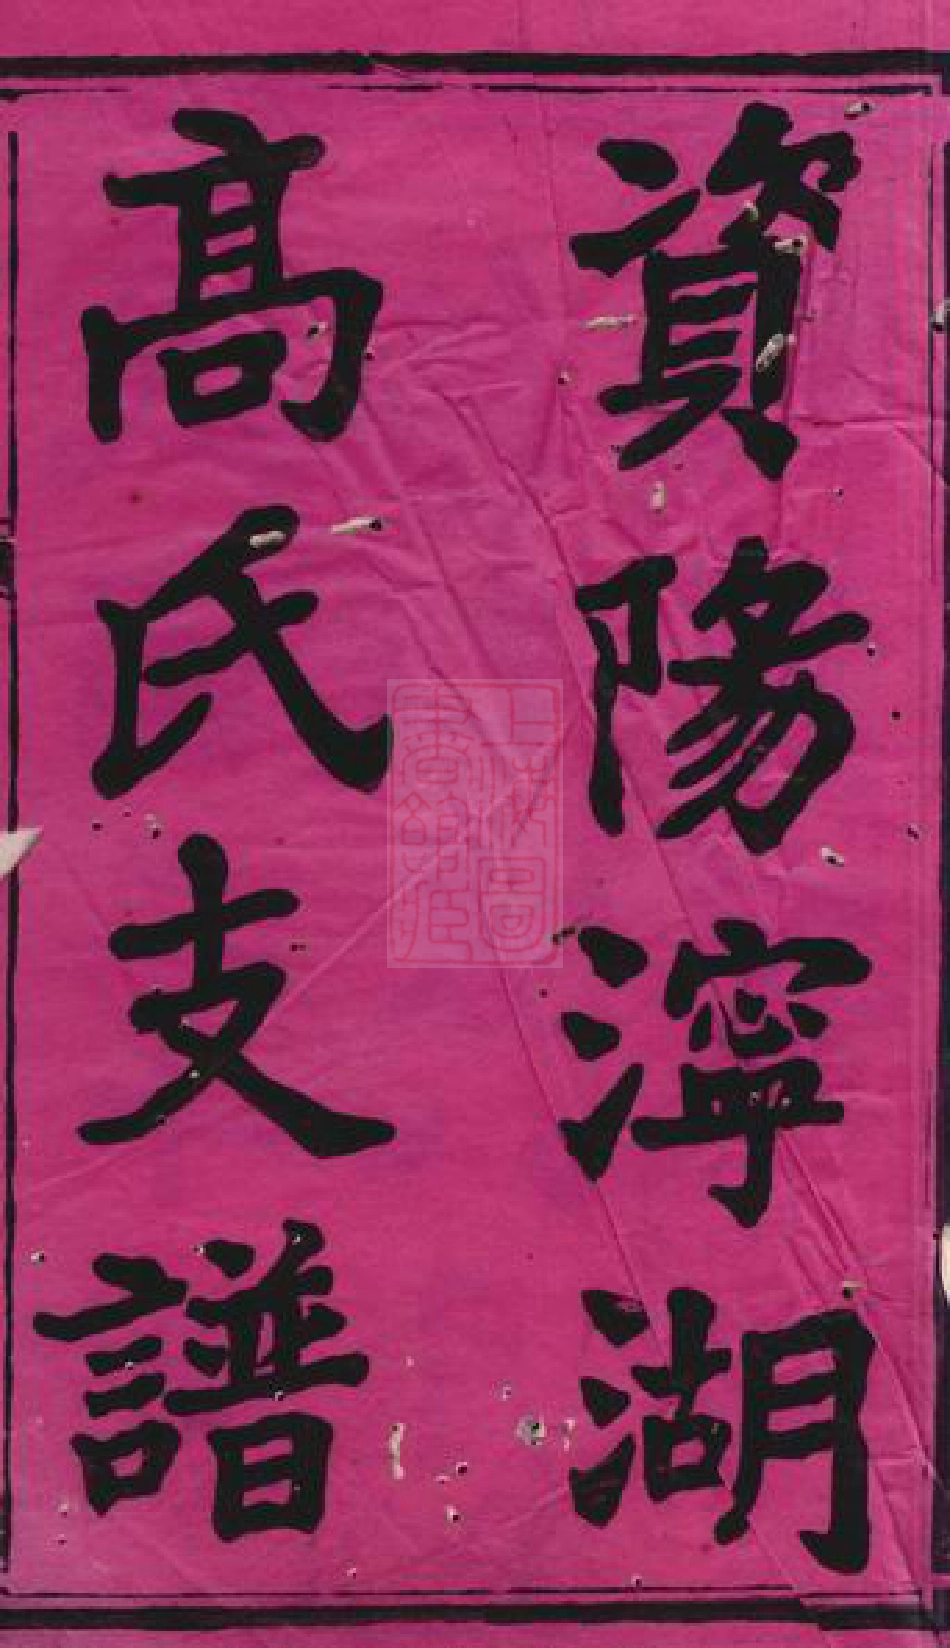 資陽濘湖
髙氏支譜
上海圖書館藏